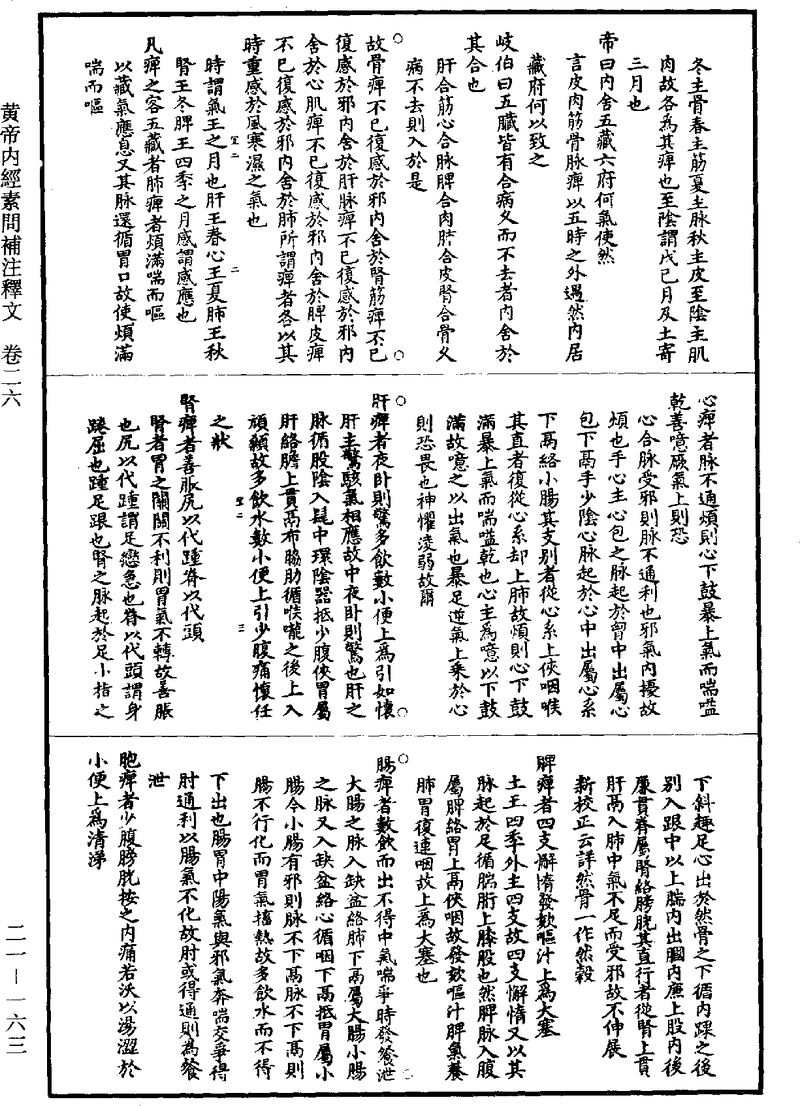 冬主骨春主筋夏主脉秋主皮至陰主肌
肉故各為其痺也至陰謂戊己月及土寄
三月也
帝曰内舍五藏六府何氣使然
言皮肉筋骨脉痺以五時之外遇然内居
藏府何以致之
岐伯曰五臟皆有合病久而不去者内舍於
其合也
肝合筋心合脉脾合肉肺合皮腎合骨久
病不去則入於是
故骨痺不已復感於邪内舍於腎筋痺不已
復感於邪内舍於肝脉痺不已復感於邪内
舍於心肌痺不已復感於邪内舍於脾皮痺
不已復感於邪内舍於肺所謂痺者各以其
時重感於風寒濕之氣也
時謂氣王之月也肝王春心王夏肺王秋
腎王冬脾王四季之月感謂感應也
凡痺之客五藏者肺痺者煩滿喘而嘔
以藏氣應息又其脉還循胃口故使煩滿
喘而嘔
心痺者脉不通煩則心下鼓暴上氣而喘嗌
乾善噫厥氣上則恐
心合脉受邪則脉不通利也邪氣内擾故
煩也手心主心包之脉起於胷中出屬心
包下鬲手少陰心脉起於心中出屬心系
下鬲絡小腸其支別者從心系上俠咽喉
其直者復從心系却上肺故煩則心下鼓
滿暴上氣而喘嗌乾也心主為噫以下鼓
滿故噫之以出氣也暴足逆氣上乗於心
則恐畏也神懼淩弱故爾
肝痺者夜卧則驚多飲數小便上為引如懷
肝主驚駭氣相應故中夜卧則驚也肝之
脉循股陰入髦中環陰器抵少腹俠胃屬
肝絡膽上貫鬲布脇肋循喉嚨之後上入
頏顙故多飲水數小便上引少腹痛懷任
之狀
腎痺者善脹尻以代踵脊以代頭
腎者胃之關關不利則胃氣不轉故善脹
也尻以代踵謂足攣急也脊以代頭謂身
踡屈也踵足跟也腎之脉起於足小指之
下斜趣足心出於然骨之下循内踝之後
別入跟中以上腨内出膕内廉上股内後
廉貫脊屬腎絡膀胱其直行者從腎上貫
肝鬲入肺中氣不足而受邪故不伸展
新校正云詳然骨一作然榖
脾痺者四支懈惰發欬嘔汁上為大塞
土王四季外主四支故四支懈惰又以其
脉起於足循腨胻上膝股也然脾脉入腹
屬脾絡胃上鬲俠咽故發欬嘔汁脾氣養
肺胃復連咽故上為大塞也
腸痺者數飲而出不得中氣喘爭時發飱泄
大腸之脉入缺盆絡肺下鬲屬大腸小腸
之脉又入缺盆絡心循咽下鬲抵胃屬小
腸今小腸有邪則脉不下鬲脉不下鬲則
腸不行化而胃氣搐熱故多飲水而不得
下出也腸胃中陽氣與邪氣奔喘交爭得
時通利以腸氣不化故時或得通則為飱
泄
胞痺者少腹膀胱按之内痛若沃以湯澀於
小便上為清涕
黄帝内經素問補注釋文 卷二六
二一—一六三